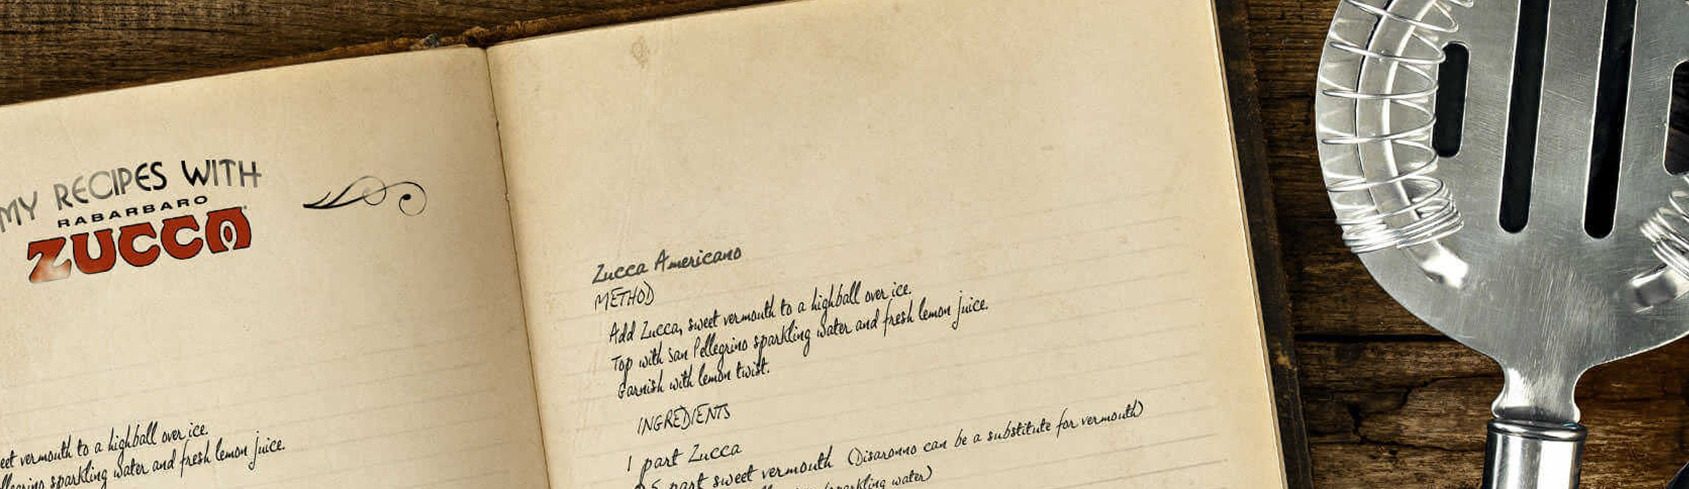 MY RECIPES WITH
RABARBARO
ZUCCA
vermouth to a highball over ice.
sparkling water and fresh lemon juice.
Zucca Americano
METHOD
Add Zucca, sweet vermouth to a highball over ice.
Top with San Pellegrino sparkling water and fresh lemon juice.
Garnish with lemon twist.
INGREDIENTS
1 part Zucca
part sweet vermouth (Disaronno can be a substitute for vermouth)
sparkling water)